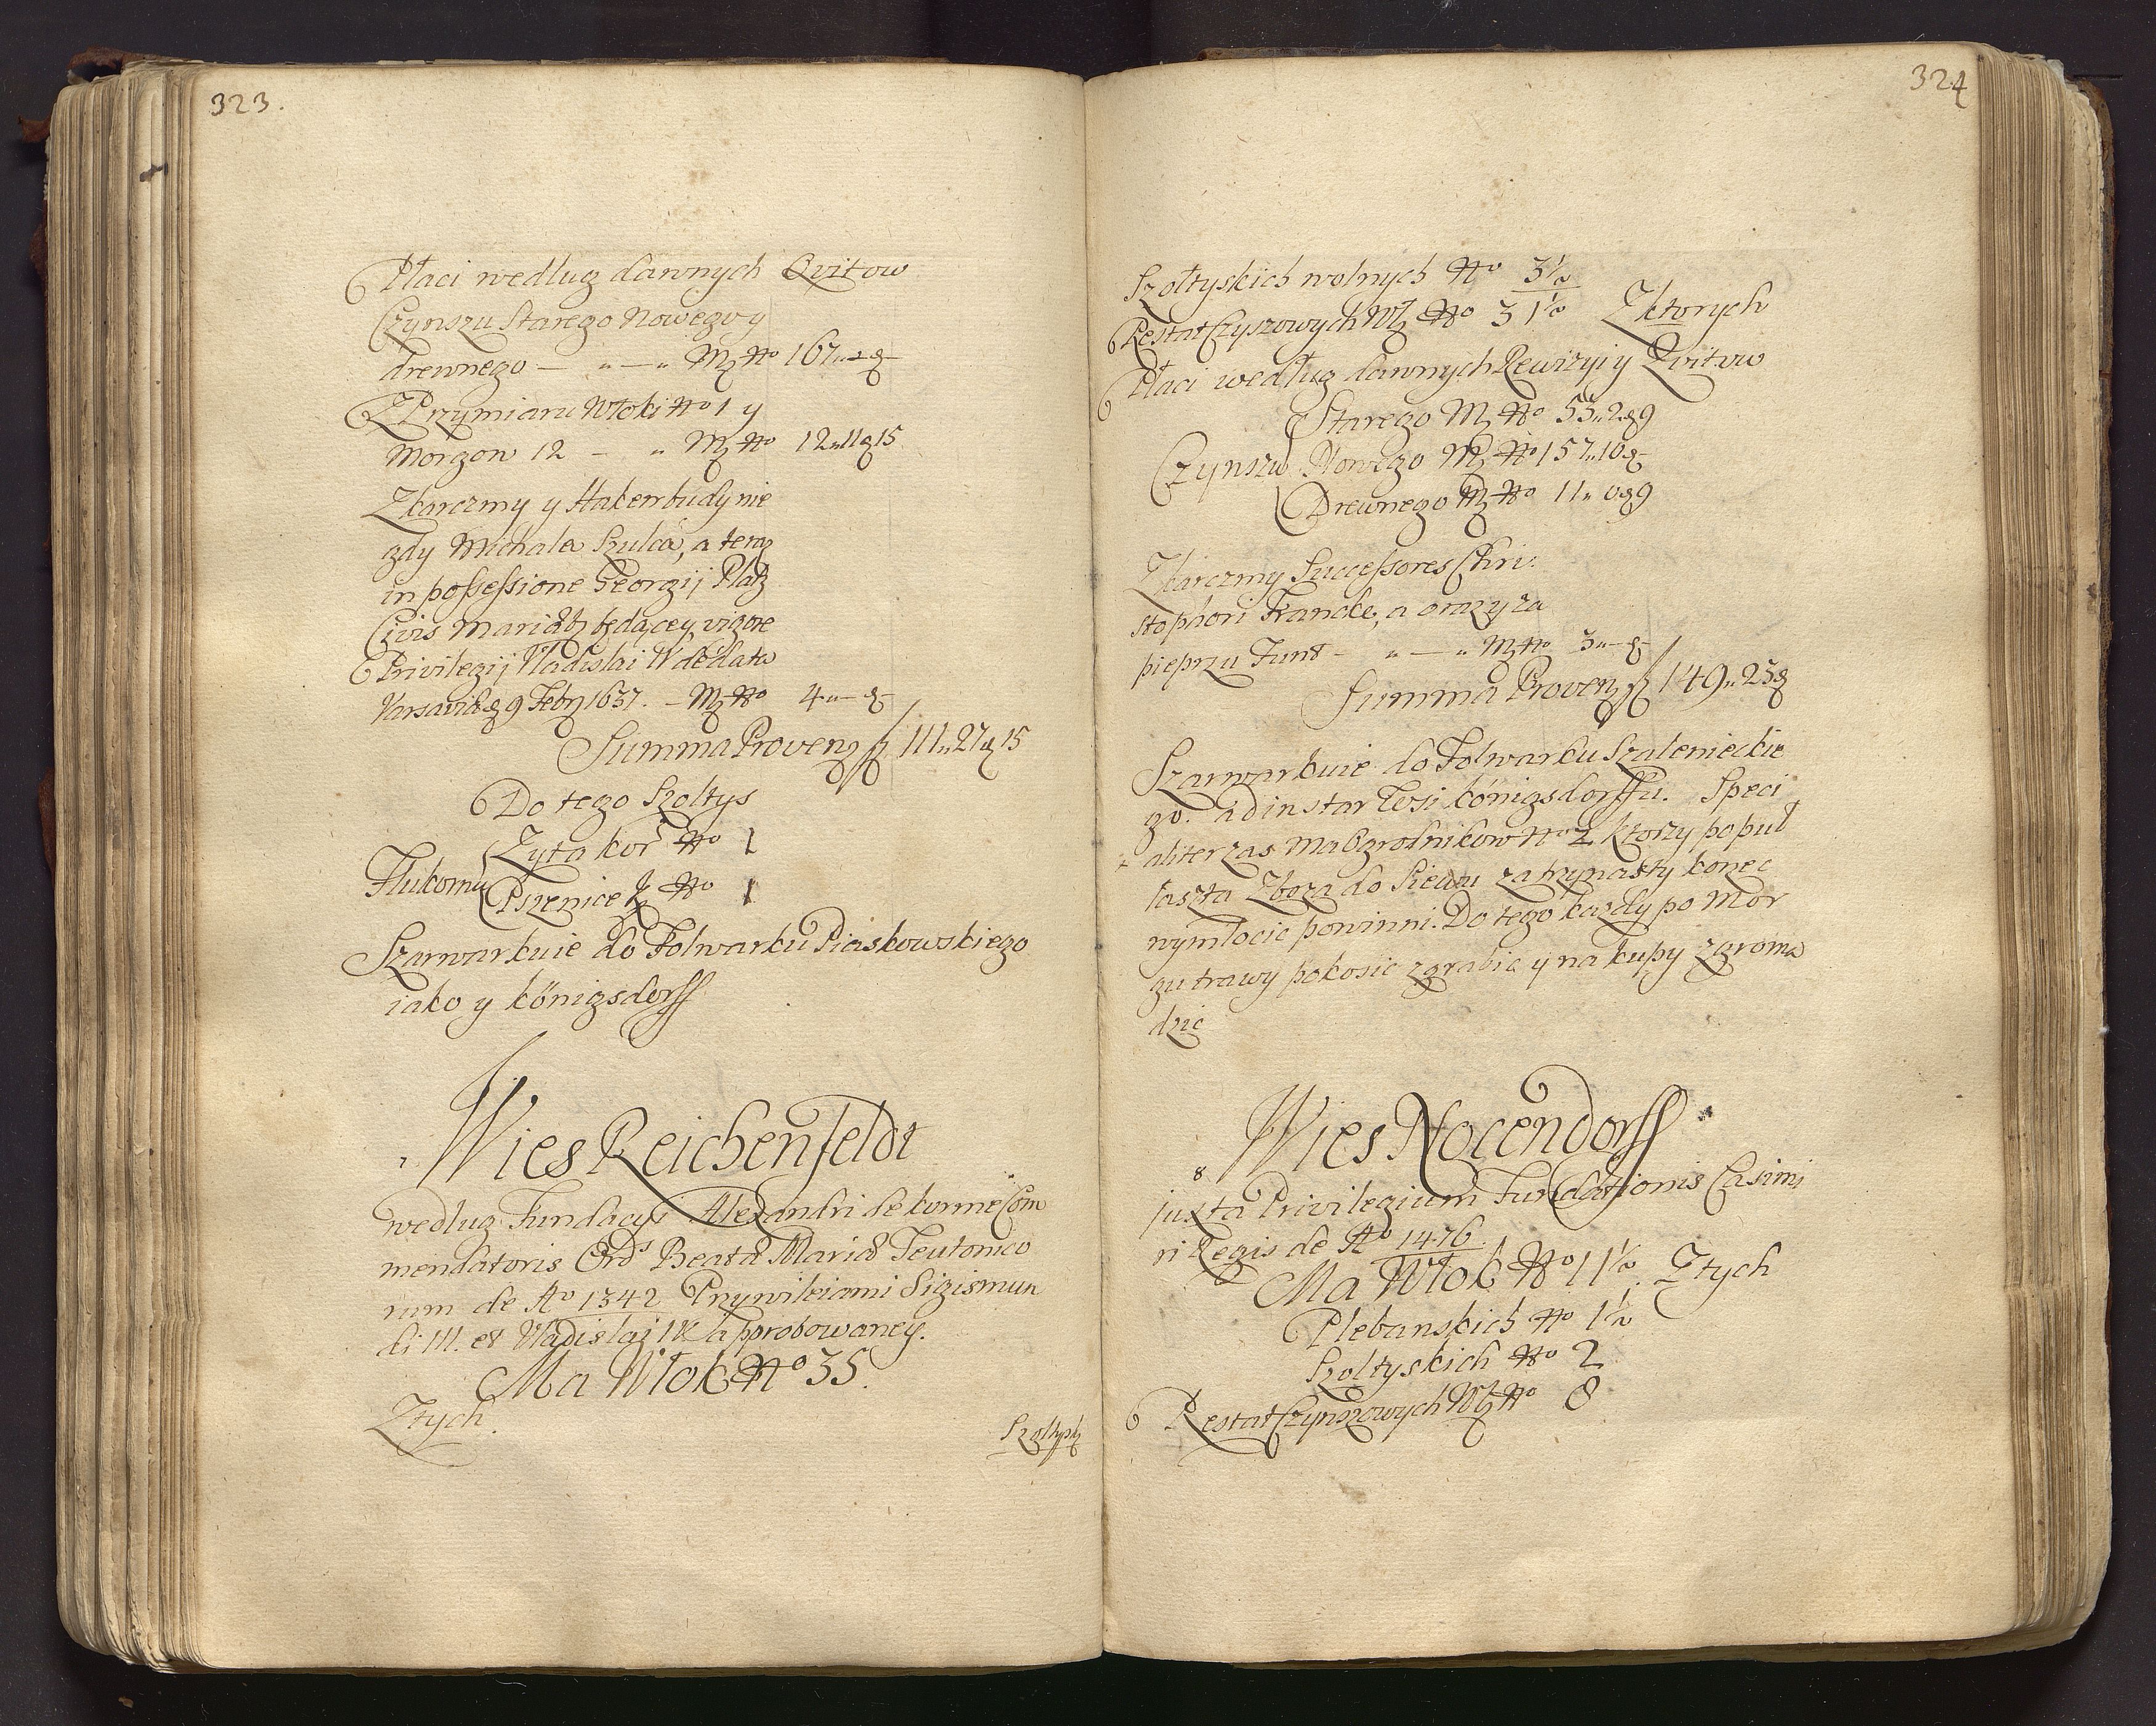 323.
Płaci wedlug dawnych Qvitow
Czynszu Starego Nowego y
drewnego — „ — „ Mȝ No 167„2 g —
Z Przymiaru Włoki No 1 y
Morgow 12 — „ Mȝ No 12„11 g 15
Zkarczmy y Hakenbudy nie
gdy Michala Szulca, a teraz
in possessione Georgij Platz
Civis Mariæb: będącey, vigore
Privilegij Vladislai IV de data
Varsaviæ g 9 Febr 1637. — Mȝ No 4„— g —
Summa Provenȝ fȝ 111„27 g 15
Do tego Szoltys
Zyta kor No 1
Flukornu
Pszenice kȝ No 1
Szarwarkuie do Folwarku Piaskowskiego
iako y Königsdorff
7 Wies Reichenfeldt
wedlug Fundacyi Alexandri de Korme Com
mendatoris Ords Beatæ Mariæ Teutonico
rum de Ao 1342 Przywileiami Sigismun
di III. et Vladislaj IV aprobowaney.
Ma Włok No 35.
Ztych.
Szołtysk
324
Szołtyskich wolnych No 3½
Restat Czyszowych Wł No 31½ Zktorych
Płaci według dawnych Rewizyi y Qvitow
Starego Mȝ No 55„2 g 9
Czynszu Nowego Mȝ No 157„16 g —
Drewnego Mȝ No 11„0 g 9
Zkarczmy Successores Chri-
stophori Francke, a oraz y za
pieprzu Funt — „ — „ Mȝ No 3„— g —
Summa Provenȝ fȝ 149„25 g
Szarwarkuie do Folwarku Szalenieckie
go. ad instar Wsi Königsdorffu. Speci
aliter zas ma Ogrodnikow No 2 ktorzy po puł
łaszta Zboza do Siewu za trzynasty korzec
wymłocic powinni. Do tego kazdy po Mor
gu trawy pokosic zgrabic y na kupy zgroma
dzic
8 Wies Nocendorff
juxta Privilegium Fundationis Casimi
ri Regis de Ao 1476.
Ma Włok No 11½. Ztych
Plebanskich No 1½
Szoltyskich No 2
Restat Czynszowych Wł No 8